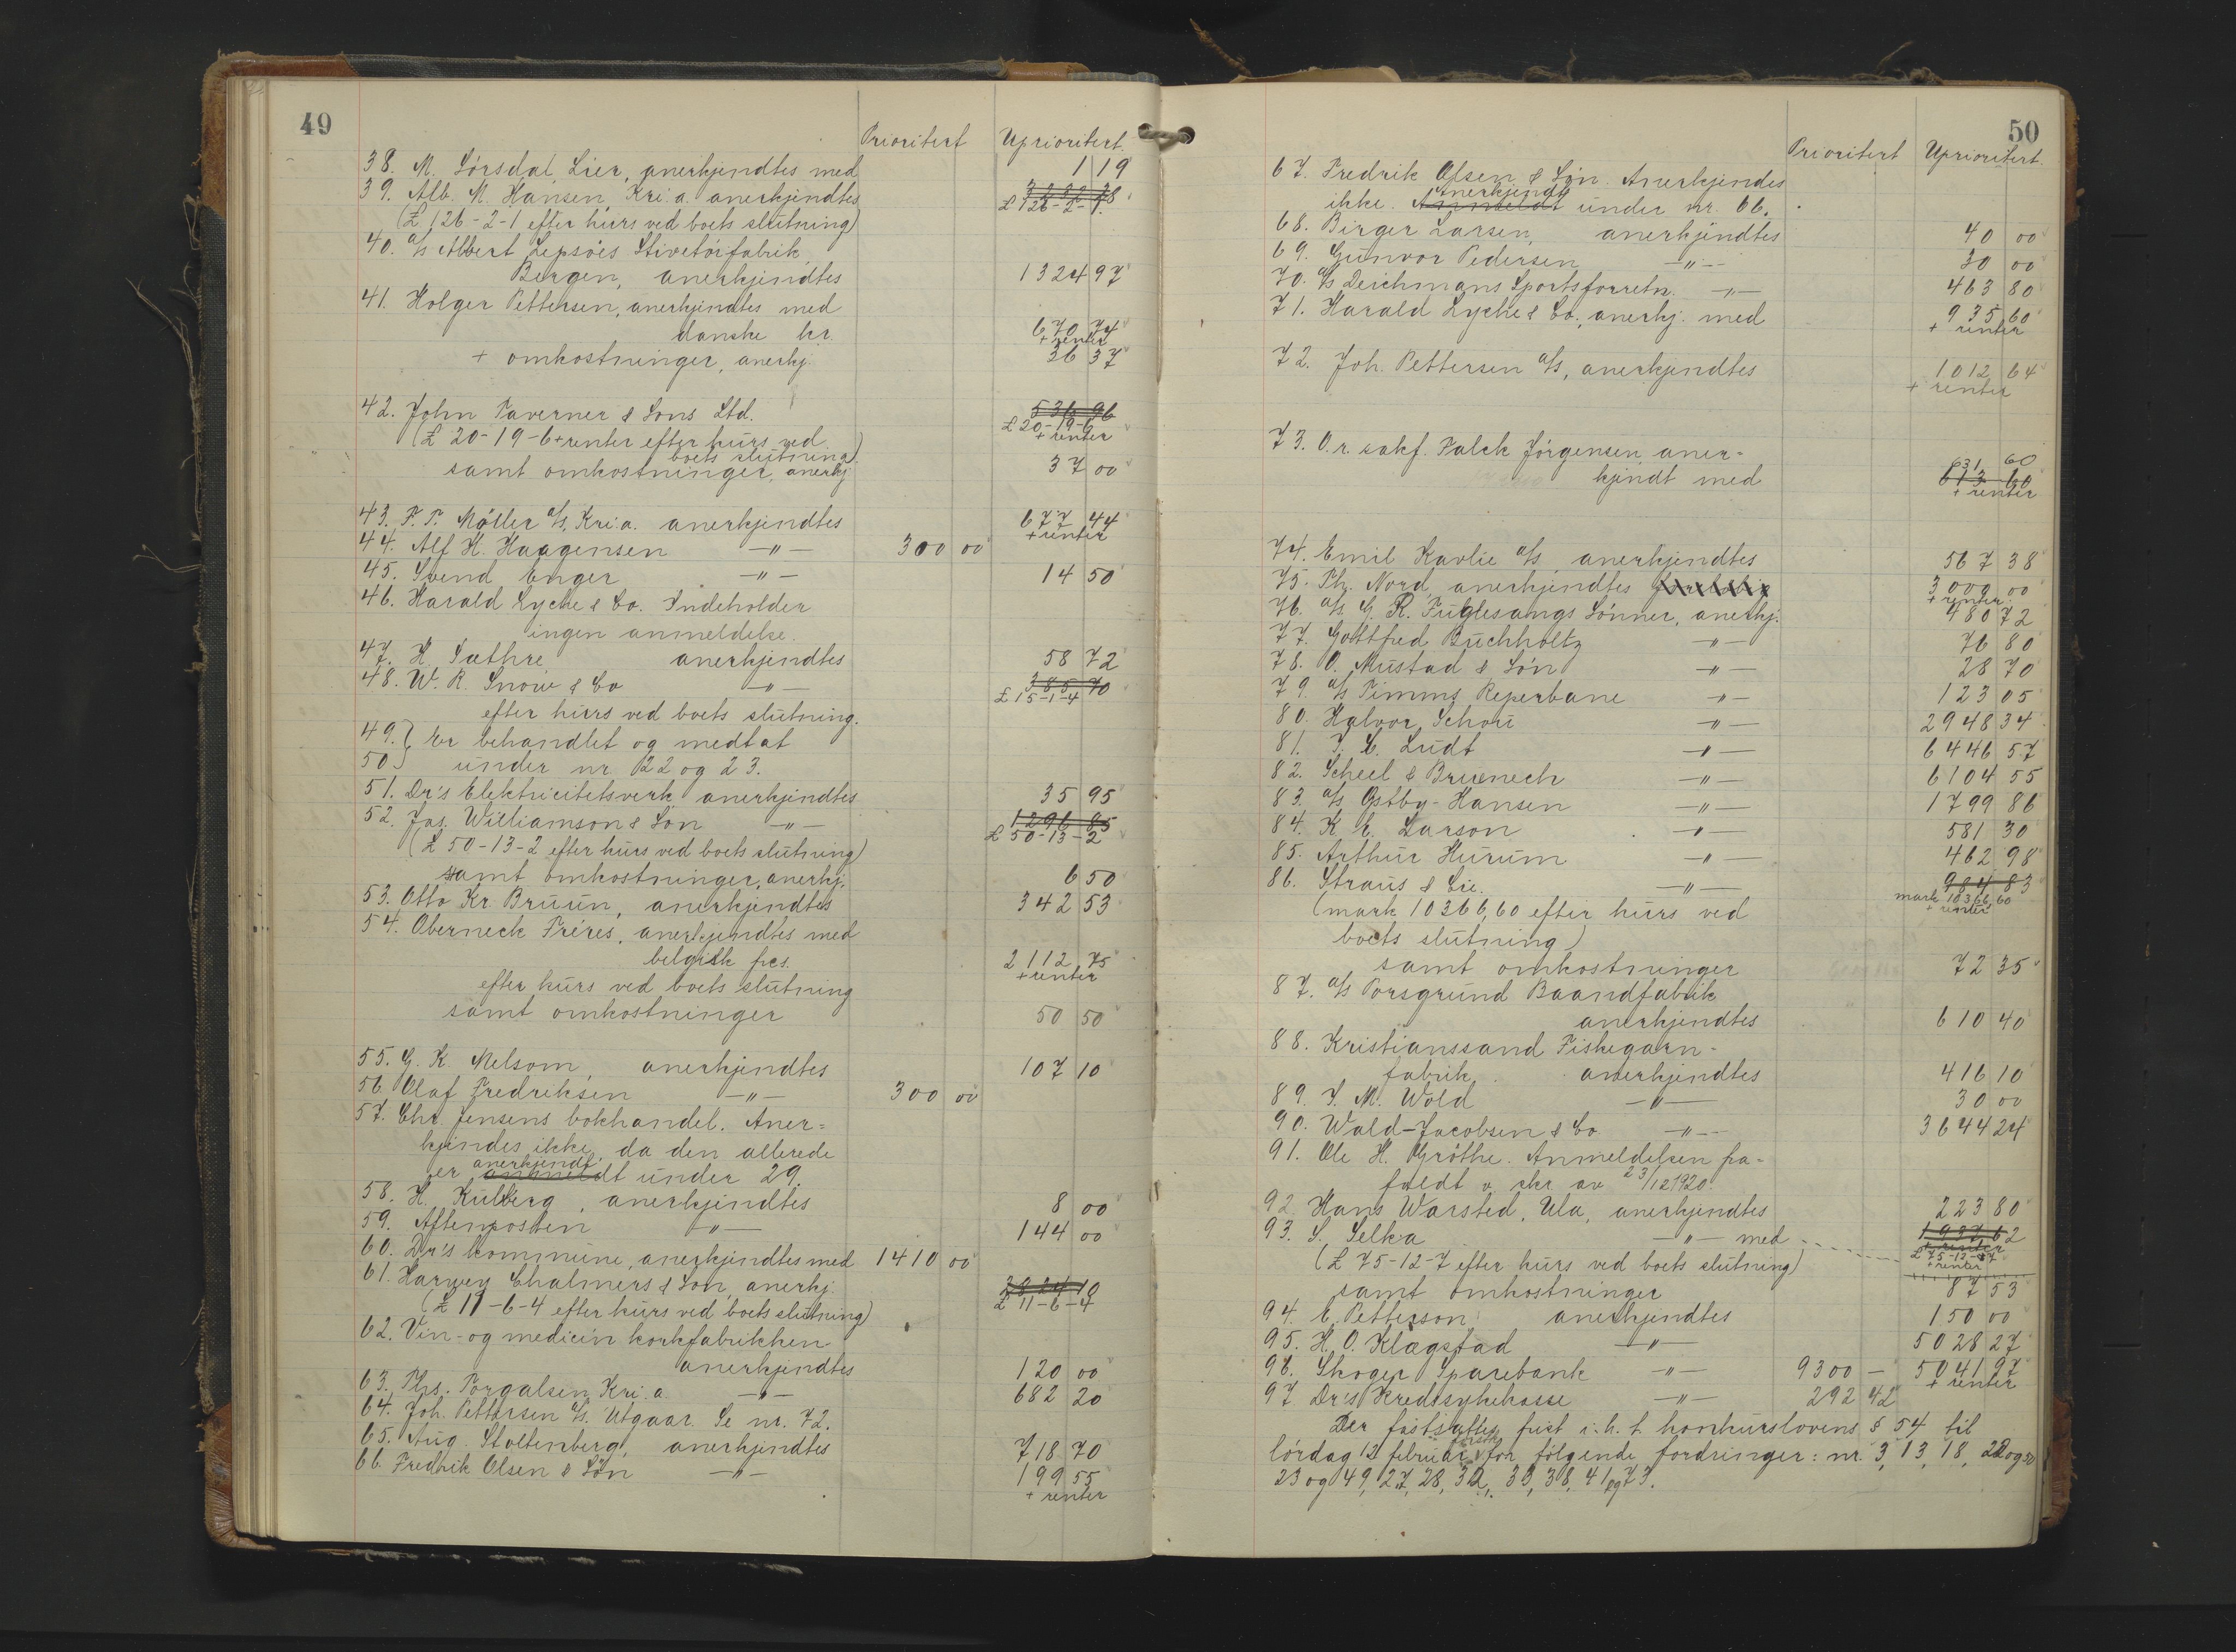 49
Prioritert Uprioritert.
38. M. Sörsdal, Lier, anerkjendtes med 1 19
39. Alb. M. Hansen, Kri.a. anerkjendtes £ 126-2-1.
(£ 126-2-1 efter kurs ved boets slutning)
40. A/s Albert Lepsöes Stivetöifabrik,
Bergen, anerkjendtes 1324 97
41. Holger Pettersen, anerkjendtes med
danske kr. 670 74
+ renter
+ omkostninger, anerkj. 36 37
42. John Taverner & Sons Ltd. 536 96
£ 20-19-6
(£ 20-19-6 + renter efter kurs ved + renter
boets slutning)
samt omkostninger, anerkj 37 00
43. F. T. Möller A/s, Kri.a. anerkjendtes 677 44
+ renter
44. Alf H. Haagensen —"— 300 00
45. Svend Enger —"— 14 50
46. Harald Lyche & Co. Indeholder
ingen anmeldelse.
47. H. Sæthre anerkjendtes 58 72
48. W. R. Snow & Co —"— 385 70
£ 15-1-4
efter kurs ved boets slutning.
49.} Er behandlet og medtat
50} under nr. 22 og 23.
51. Dr's Elektricitetsverk anerkjendtes 35 95
52. Jas. Williamson & Sön —"— 1296 85
£ 50-13-2
(£ 50-13-2 efter kurs ved boets slutning)
samt omkostninger, anerkj. 6 50
53. Otto Kr. Bruun, anerkjendtes 342 53
54. Oberneck Fréres, anerkjendtes med
belgisk frcs. 2112 75
+ renter
efter kurs ved boets slutning
samt omkostninger 50 50
55. G. K. Melsom, anerkjendtes 107 10
56 Olaf Fredriksen —"— 300 00
57. Chr. Jensens bokhandel. Aner=
kjendes ikke, da den allerede
anerkjendt
er anmeldt under 29.
58. H. Kulberg, anerkjendtes 8 00
59. Aftenposten —"— 144 00
60. Dr's kommune, anerkjendtes med 1410 00
61. Harwey Chalmers & Son, anerkj.
£ 11-6-4
(£ 11-6-4 efter kurs ved boets slutning)
62. Vin- og medicin korkfabrikken
anerkjendtes 120 00
63. Ths. Torgalsen, Kri.a —"— 682 20
64. Joh. Pettersen A/s. Utgaar. Se nr. 72.
65. Aug. Stoltenberg, anerkjendtes 718 70
66. Fredrik Olsen & Sön —"— 199 55
+ renter
50
Prioritert Uprioritert.
67. Fredrik Olsen & Sön. Anerkjendes
Anerkjendt
ikke. Anmeldt under nr. 66.
68. Birger Larsen, anerkjendtes 40 00
69. Gunvor Pedersen —"— 30 00
70. A/s Deichmans Sportsforretn. —"— 463 80
71. Harald Lyche & Co., anerkj. med 935 60
+ renter
72. Joh. Pettersen A/s, anerkjendtes 1012 64
+ renter
73. O.r. sakf. Falck Jörgensen, aner=
631 60
kjendt med 613 60
+ renter
74. Emil Kavlie A/s, anerkjendtes 567 38
75. Th. Nord, anerkjendtes 3000 00
+ renter.
76. A/s G. R. Fuglesangs Sönner, anerkj. 480 72
77. Gottfred Buchholtz —"— 76 80
78. O. Mustad & Sön —"— 28 70
79. A/s Timms Reperbane —"— 123 05
80. Halvor Schou —"— 2948 34
81. J. C. Ludt —"— 6446 57
82. Scheel & Bruenech —"— 6104 55
83. A/s Østby-Hansen —"— 1799 86
84. K. E. Larson —"— 581 30
85. Arthur Hurum —"— 462 98
86. Straus & Cie. —"— 984 83
mark 10366,60
+ renter
(mark 10366,60 efter kurs ved
boets slutning)
samt omkostninger 72 35
87. A/s Porsgrund Baandfabrik
anerkjendtes 610 40
88. Kristianssand Fiskegarn-
fabrik. anerkjendtes 416 10
89. J. M. Wold —"— 30 00
90. Wald-Jacobsen & Co —"— 3644 24
91. Ole H. Gröthe. Anmeldelsen fra=
faldt v. skr. av 23/12 1920.
92. Hans Warsted, Ula, anerkjendtes 223 80
93. S. Selka —"— med 1987,62
+ renter
£ 75-12-7
+ renter
(£ 75-12-7 efter kurs ved boets slutning)
samt omkostninger 87 53
94. E. Petterson anerkjendtes 150 00
95. H. O. Klagstad —"— 5028 27
96. Skoger Sparebank —"— 9300 — 5041 97
+ renter
97 Dr's Kredssykekasse —"— 292 42
Der fastsattes frist i. h. t. konkurslovens § 54 til
lördag 12 februar for fölgende fordringer: nr. 3, 13, 18, 22 og 50
23 og 49, 27, 28, 32, 33, 38, 41 og 73.